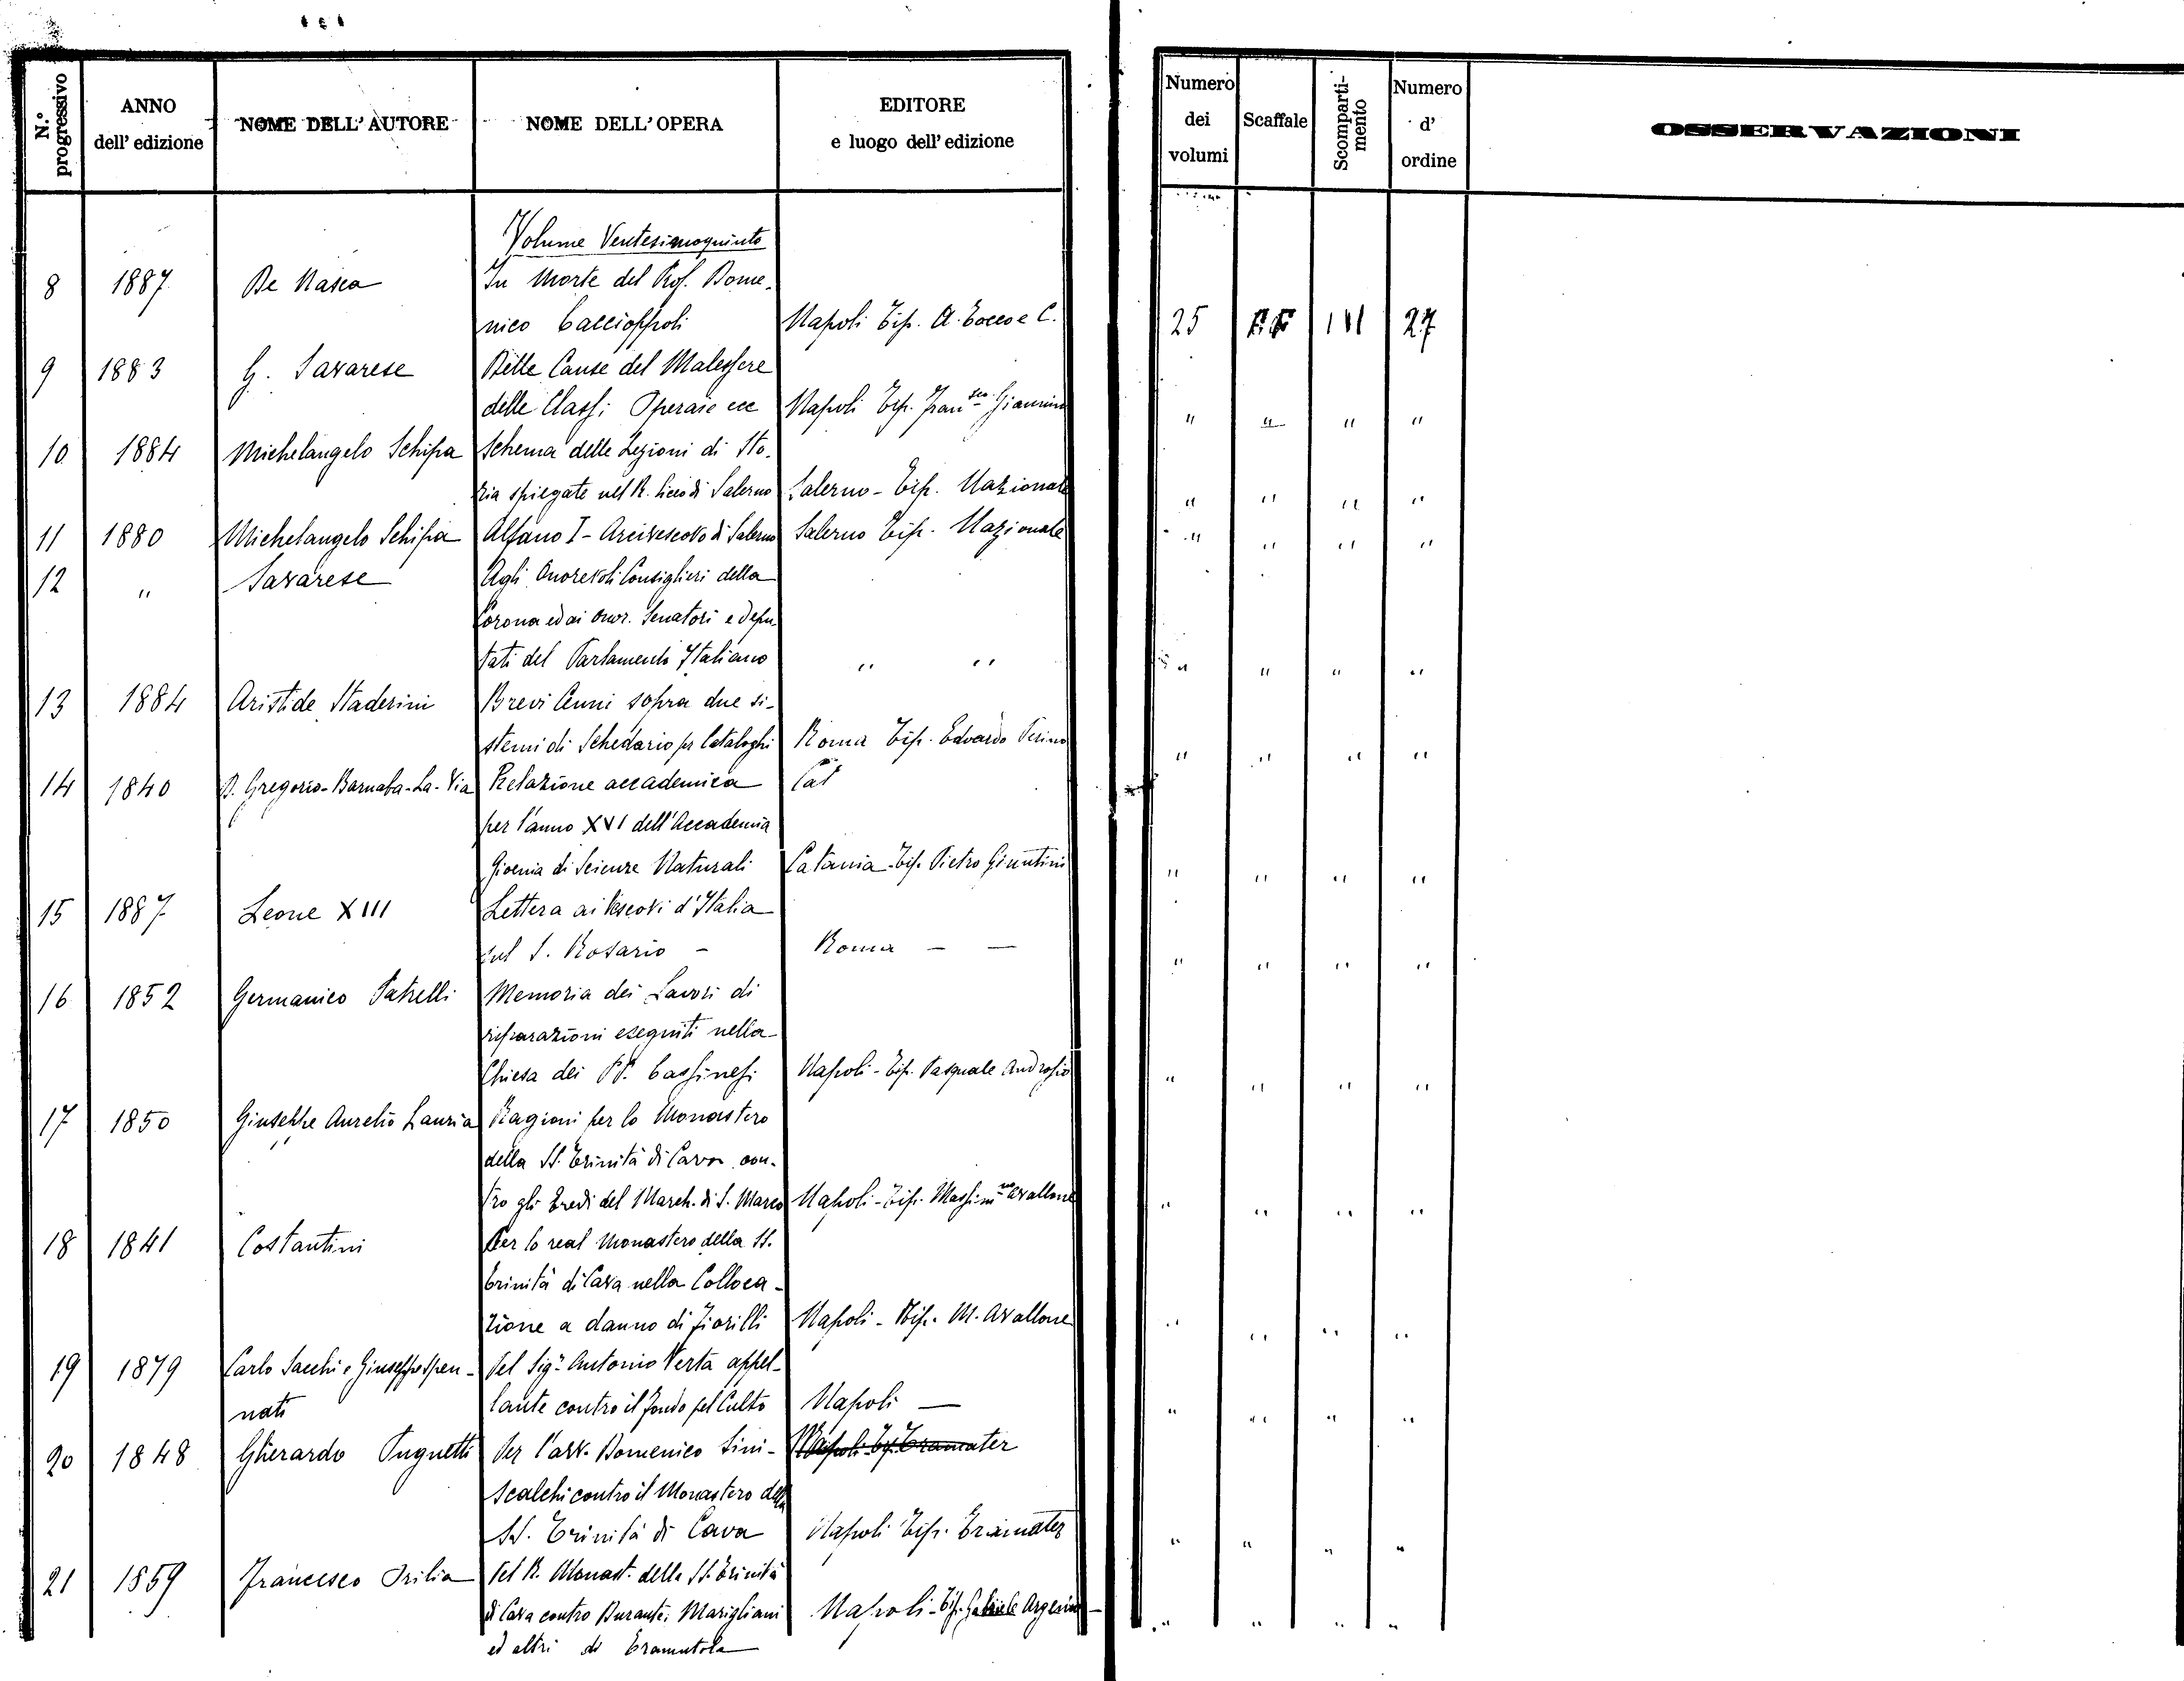 N.° progressivo
ANNO dell' edizione
NOME DELL' AUTORE
NOME DELL' OPERA
EDITORE e luogo dell' edizione
Numero dei volumi
Scaffale
Scomparti-mento
Numero d' ordine
OSSERVAZIONI
Volume Ventesimoquinto
8 1887 De Nasca In Morte del Prof. Dome-
nico Caccioppoli Napoli Tip. A. Tocco e C. 25 III 27
9 1883 G. Savarese Delle Cause del Malessere
delle Classi Operaie ecc Napoli Tip. Fran.sco Giannini " " " "
10 1884 Michelangelo Schipa Schema delle Lezioni di Sto-
ria spiegate nel R. Liceo di Salerno Salerno - Tip. Nazionale " " " "
11 1880 Michelangelo Schipa Alfano I - Arcivescovo di Salerno Salerno Tip. Nazionale " " " "
12 " Savarese Agli Onorevoli Consiglieri della
Corona ed ai Onor. Senatori e depu
tati del Parlamento Italiano " " " " " "
13 1884 Aristide Staderini Brevi Cenni sopra due si-
stemi di Schedario per Cataloghi Roma Tip. Edoardo Perino " " " "
14 1840 D. Gregorio-Barnaba-La-Via Relazione accademica Cat
per l'anno XVI dell'Accademia
Gioenia di Scienze Naturali Catania - Tip. Pietro Giuntini " " " "
15 1887 Leone XIII Lettera ai Vescovi d'Italia
sul S. Rosario - Roma — — " " " "
16 1852 Germanico Patrelli Memoria dei Lavori di
riparazioni eseguiti nella
Chiesa dei PP. Cassinesi Napoli - Tip. Pasquale Androsio " " " "
17 1850 Giuseppe Aurelio Lauria Ragioni per lo Monastero
della SS. Trinità di Cava con-
tro gli Eredi del March. di S. Marco Napoli - Tip. Massim.no Avallone " " " "
18 1841 Costantini Per lo real Monastero della SS.
Trinità di Cava nella Colloca-
zione a danno di Fiorilli Napoli - Tip. M. Avallone " " " "
19 1879 Carlo Sacchi e Giuseppe Spen- Pel Sigr. Antonio Verta appel-
nati lante contro il fondo pel Culto Napoli — " " " "
20 1848 Gherardo Pugnetti Per l'avv. Domenico Sini- Napoli Tip. Tramater
scalchi contro il Monastero della
SS. Trinità di Cava Napoli Tip. Tramater " " " "
21 1859 Francesco Orilia Pel R. Monast. della SS. Trinità
di Cava contro Durante, Marigliani Napoli - Tip. Gabriele Argenio — " " " "
ed altri di Tramutola